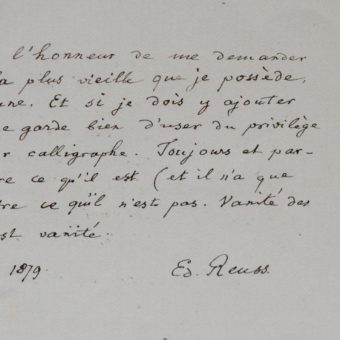 l'honneur de me demander
la plus vieille que je possède,
une. Et si je dois y ajouter
e garde bien d'user du privilège
r calligraphe. Toujours et par-
re ce qu'il est (et il n'a que
tre ce qu'il n'est pas. Vanité des
st vanité.
1879 Ed. Reuss.